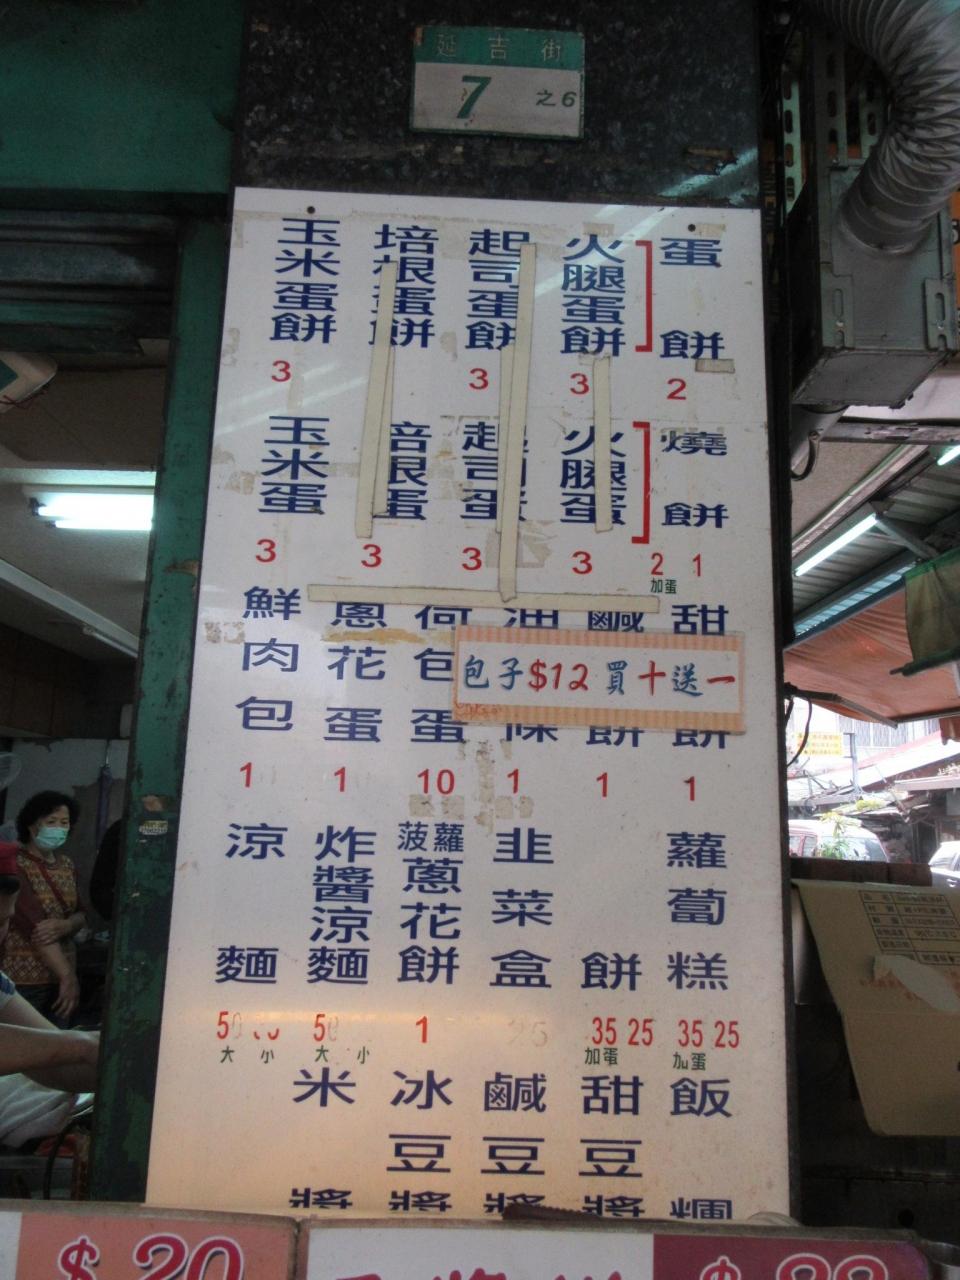 延吉街
7 之6
蛋餅 2
火腿蛋餅 3
起司蛋餅 3
培根蛋餅
玉米蛋餅 3
燒餅 1
加蛋 2
火腿蛋 3
起司蛋 3
培根蛋 3
玉米蛋 3
甜餅 1
鹹餅 1
油條 1
荷包蛋 10
蔥花蛋 1
鮮肉包 1
包子$12買十送一
蘿蔔糕 25
加蛋 35
餅 25
加蛋 35
韭菜盒 25
菠蘿蔥花餅 1
炸醬涼麵
大 小
涼麵
大 小
飯糰
甜豆漿
鹹豆漿
冰豆漿
米漿
$20